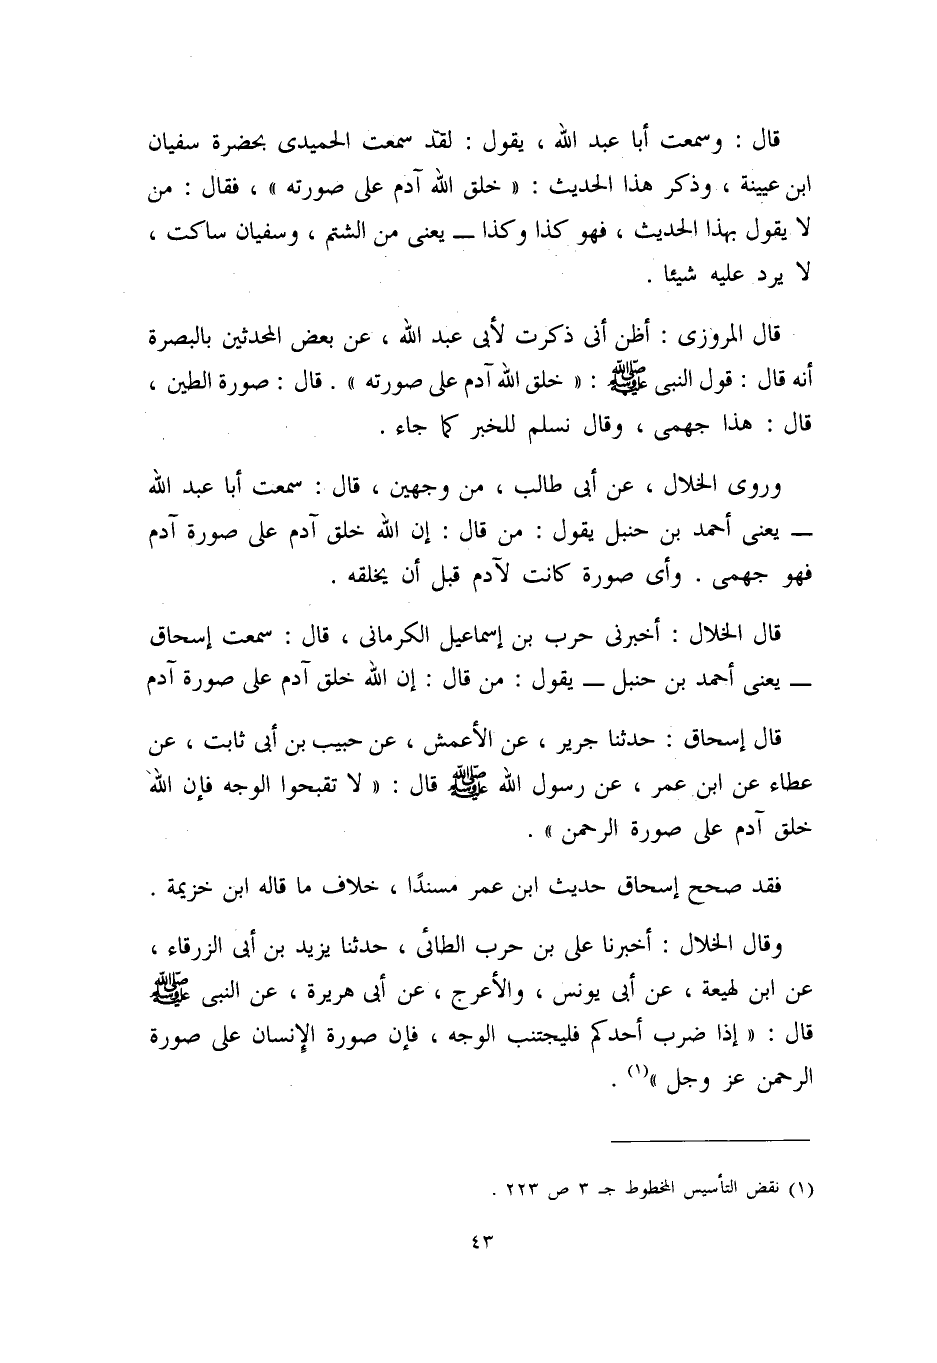 قال : وسمعت أبا عبد الله ، يقول : لقد سمعت الحميدى بحضرة سفيان
ابن عيينة ، وذكر هذا الحديث : « خلق الله آدم على صورته » ، فقال : من
لا يقول بهذا الحديث ، فهو كذا وكذا ـــ يعنى من الشتم ، وسفيان ساكت ،
لا يرد عليه شيئا .
قال المروزى : أظن أنى ذكرت لأبى عبد الله ، عن بعض المحدثين بالبصرة
أنه قال : قول النبى ﷺ : « خلق الله آدم على صورته » . قال : صورة الطين ،
قال : هذا جهمى ، وقال نسلم للخبر كما جاء .
وروى الخلال ، عن أبى طالب ، من وجهين ، قال : سمعت أبا عبد الله
ـــ يعنى أحمد بن حنبل يقول : من قال : إن الله خلق آدم على صورة آدم
فهو جهمى . وأى صورة كانت لآدم قبل أن يخلقه .
قال الخلال : أخبرنى حرب بن إسماعيل الكرمانى ، قال : سمعت إسحاق
ـــ يعنى أحمد بن حنبل ـــ يقول : من قال : إن الله خلق آدم على صورة آدم
قال إسحاق : حدثنا جرير ، عن الأعمش ، عن حبيب بن أبى ثابت ، عن
عطاء عن ابن عمر ، عن رسول الله ﷺ قال : « لا تقبحوا الوجه فإن الله
خلق آدم على صورة الرحمن » .
فقد صحح إسحاق حديث ابن عمر مسندًا ، خلاف ما قاله ابن خزيمة .
وقال الخلال : أخبرنا على بن حرب الطائى ، حدثنا يزيد بن أبى الزرقاء ،
عن ابن لهيعة ، عن أبى يونس ، والأعرج ، عن أبى هريرة ، عن النبى ﷺ
قال : « إذا ضرب أحدكم فليجتنب الوجه ، فإن صورة الإنسان على صورة
الرحمن عز وجل »(١) .
(١) نقض التأسيس المخطوط جـ ٣ ص ٢٢٣ .
٤٣